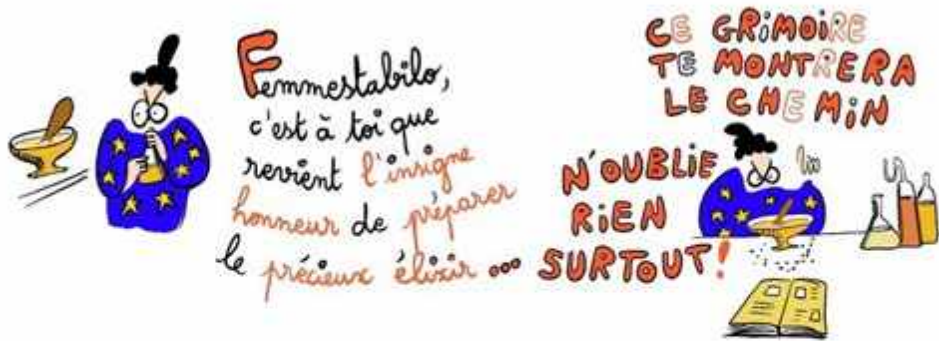 Femmestabilo,
c'est à toi que
revient l'insigne
honneur de préparer
le précieux élixir...
CE GRIMOIRE
TE MONTRERA
LE CHEMIN
N'OUBLIE
RIEN
SURTOUT!